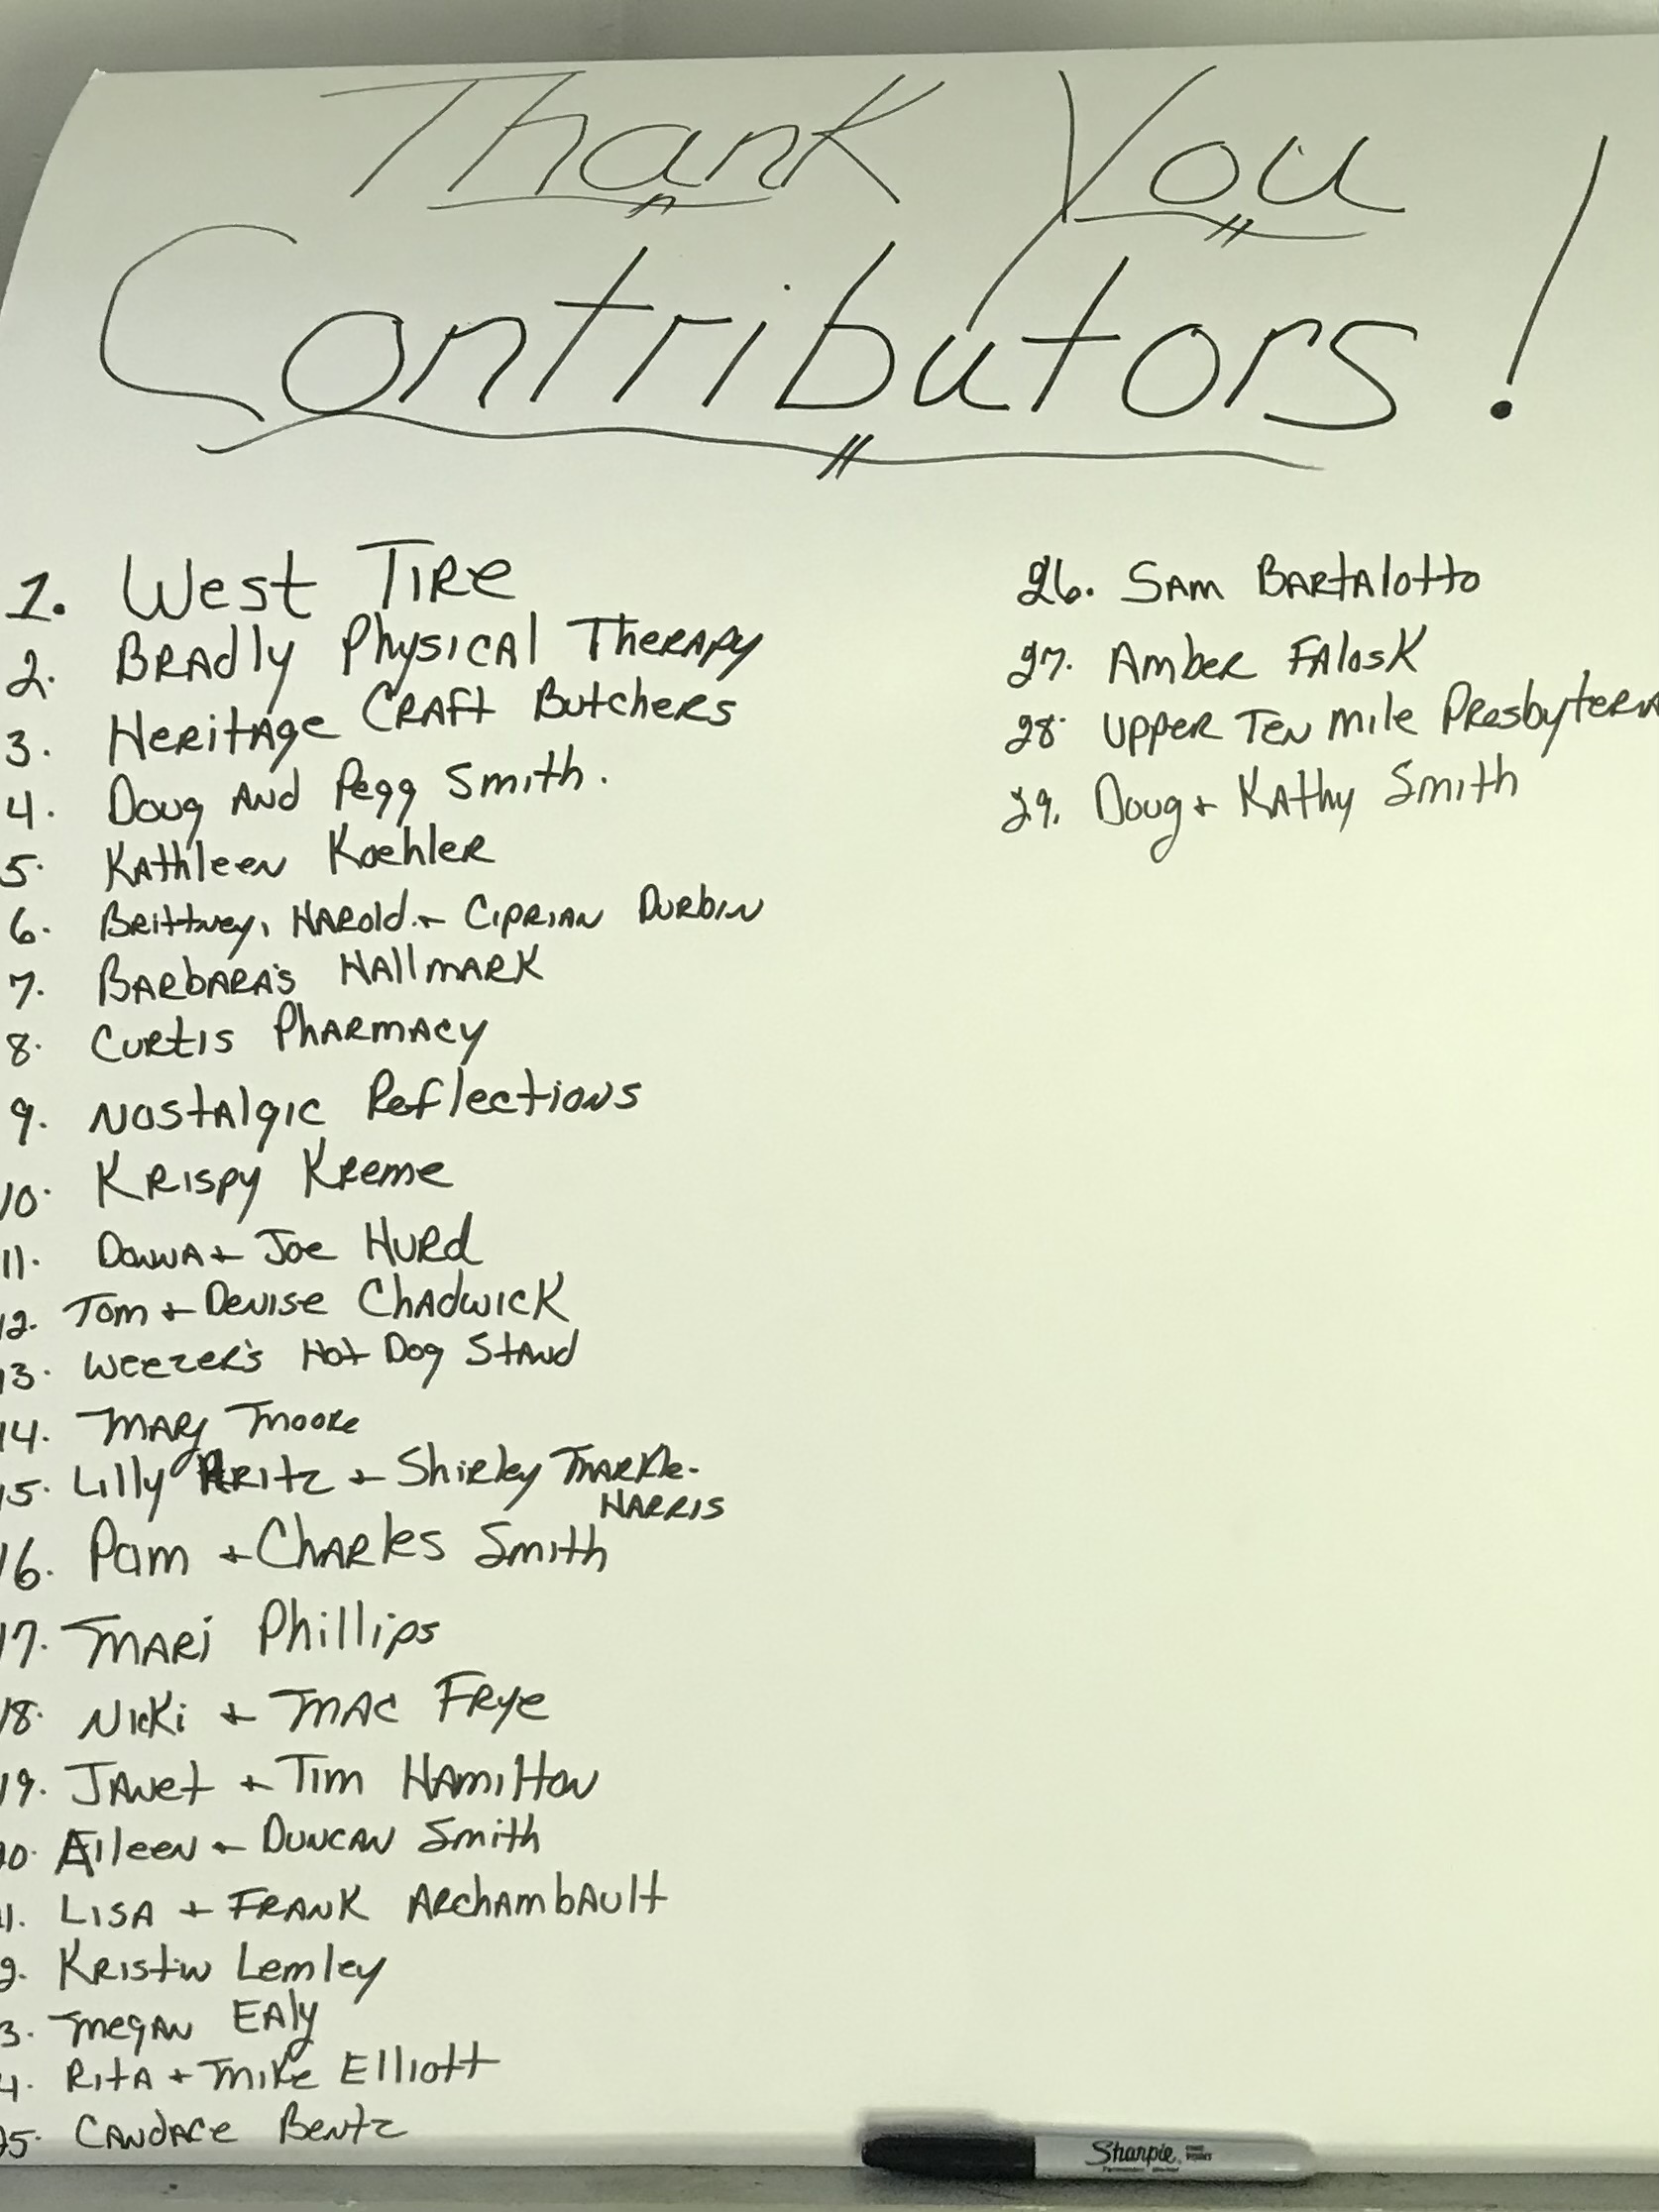 Thank You
Contributors!
1. West Tire
2. Bradly Physical Therapy
3. Heritage Craft Butchers
4. Doug And Pegg Smith.
5. Kathleen Koehler
6. Brittney, Harold + Ciprian Durbin
7. Barbara's Hallmark
8. Curtis Pharmacy
9. Nostalgic Reflections
10. Krispy Kreme
11. Donna + Joe Hurd
12. Tom + Denise Chadwick
13. Weezer's Hot Dog Stand
14. Mary Moore
15. Lilly + Shirley
Harris
16. Pam + Charles Smith
17. Mari Phillips
18. Nicki + Mac Frye
19. Janet + Tim Hamilton
20. Aileen + Duncan Smith
1. Lisa + Frank Archambault
2. Kristin Lemley
3. Megan Ealy
4. Rita + Mike Elliott
25. Candace Bentz
26. Sam Bartalotto
27. Amber Falosk
28. Upper Ten Mile Presbyteria
29. Doug + Kathy Smith
Sharpie